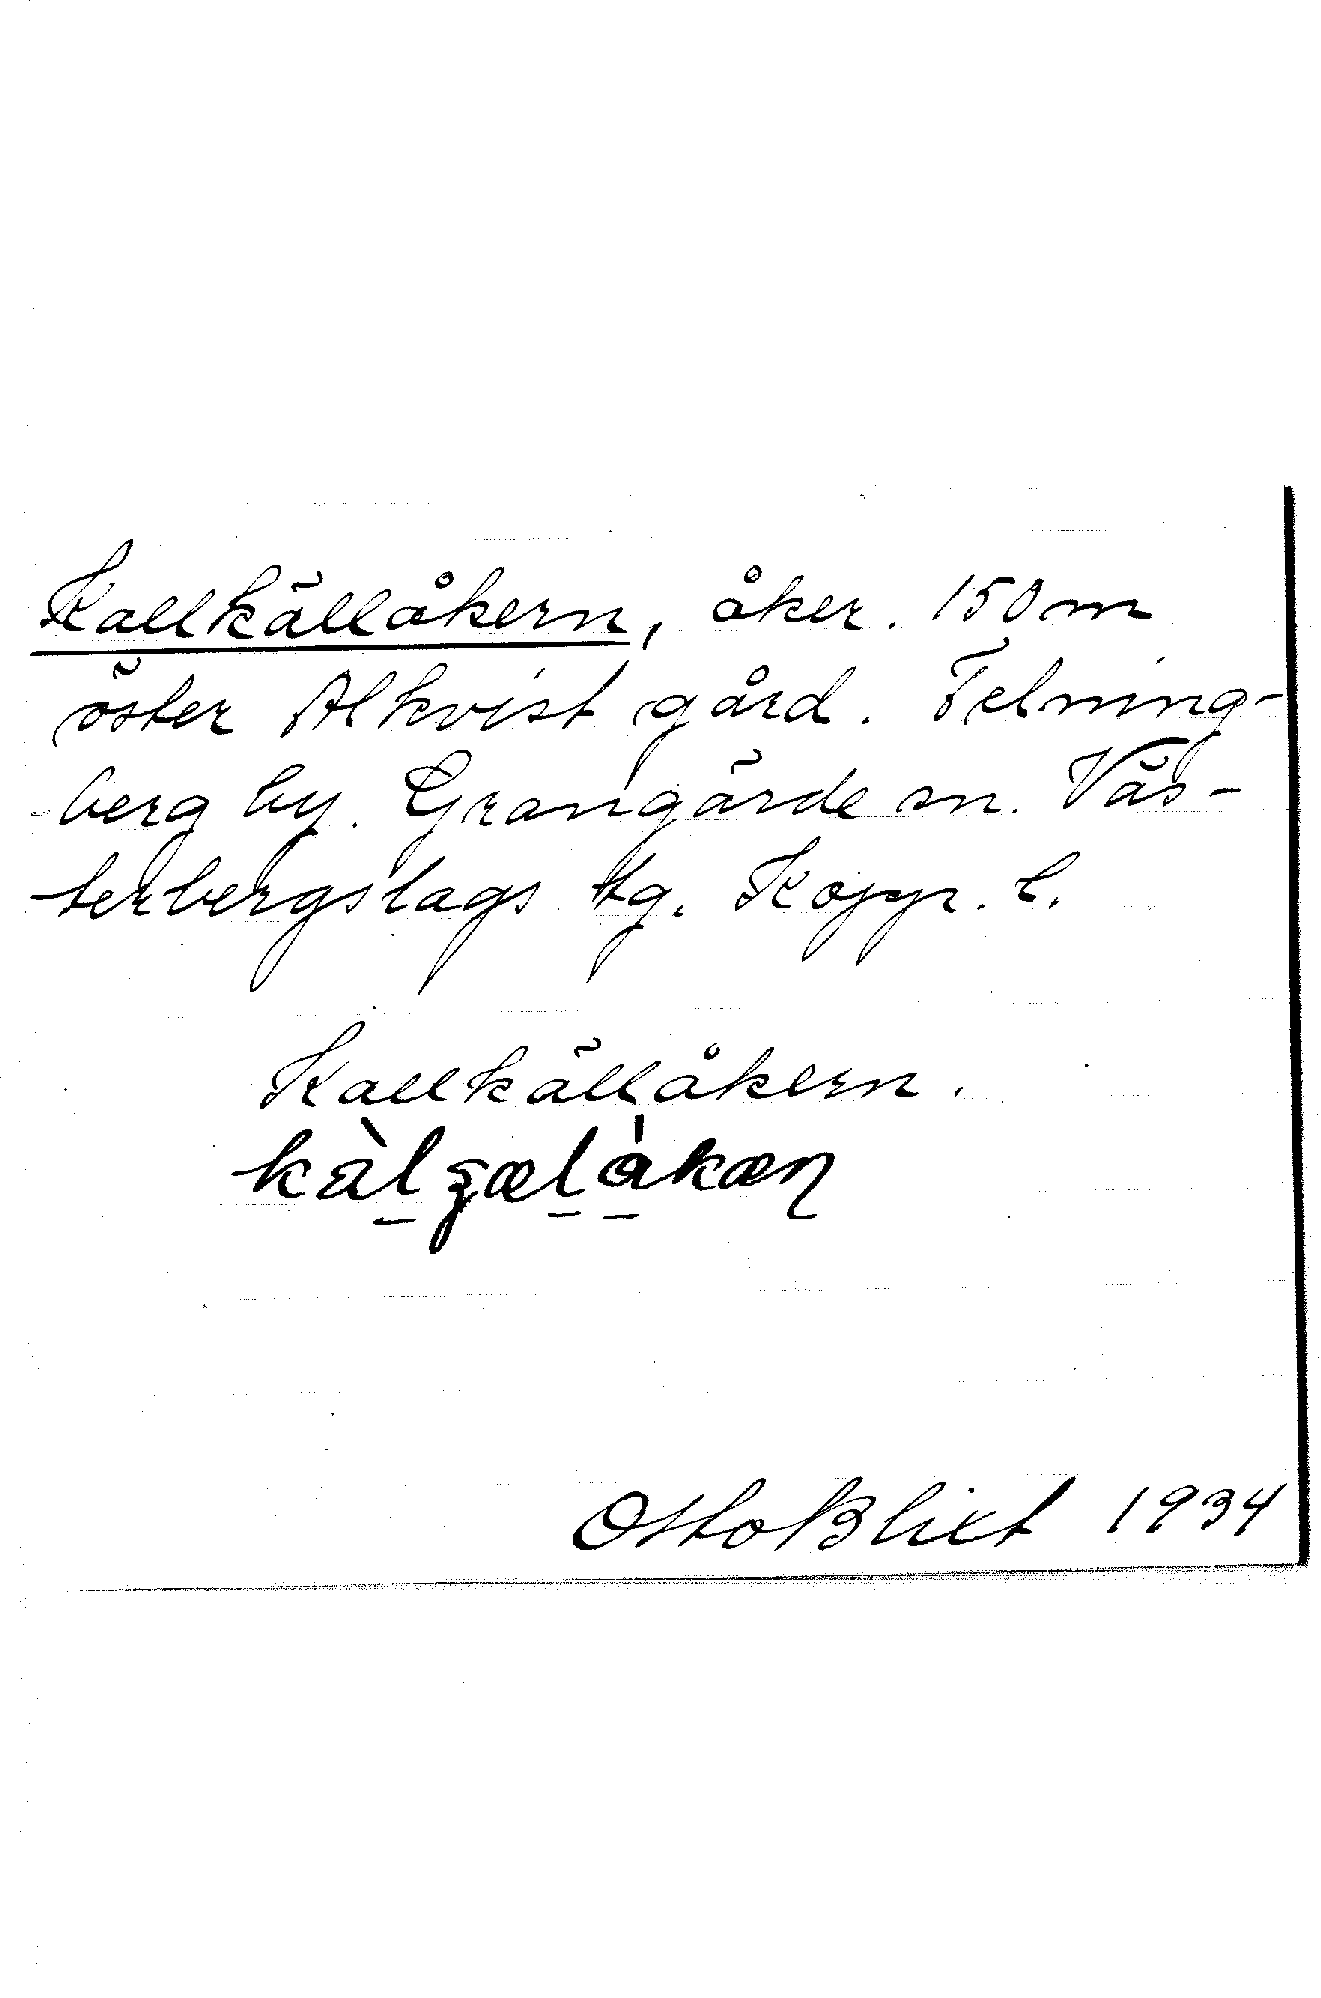 Kallkällåkern, åker. 150 m
öster Alkvist gård. Felning-
berg by. Grangärde sn. Väs-
terbergslags tg. Kopp. l.
Kallkällåkern.
Otto Blixt 1934